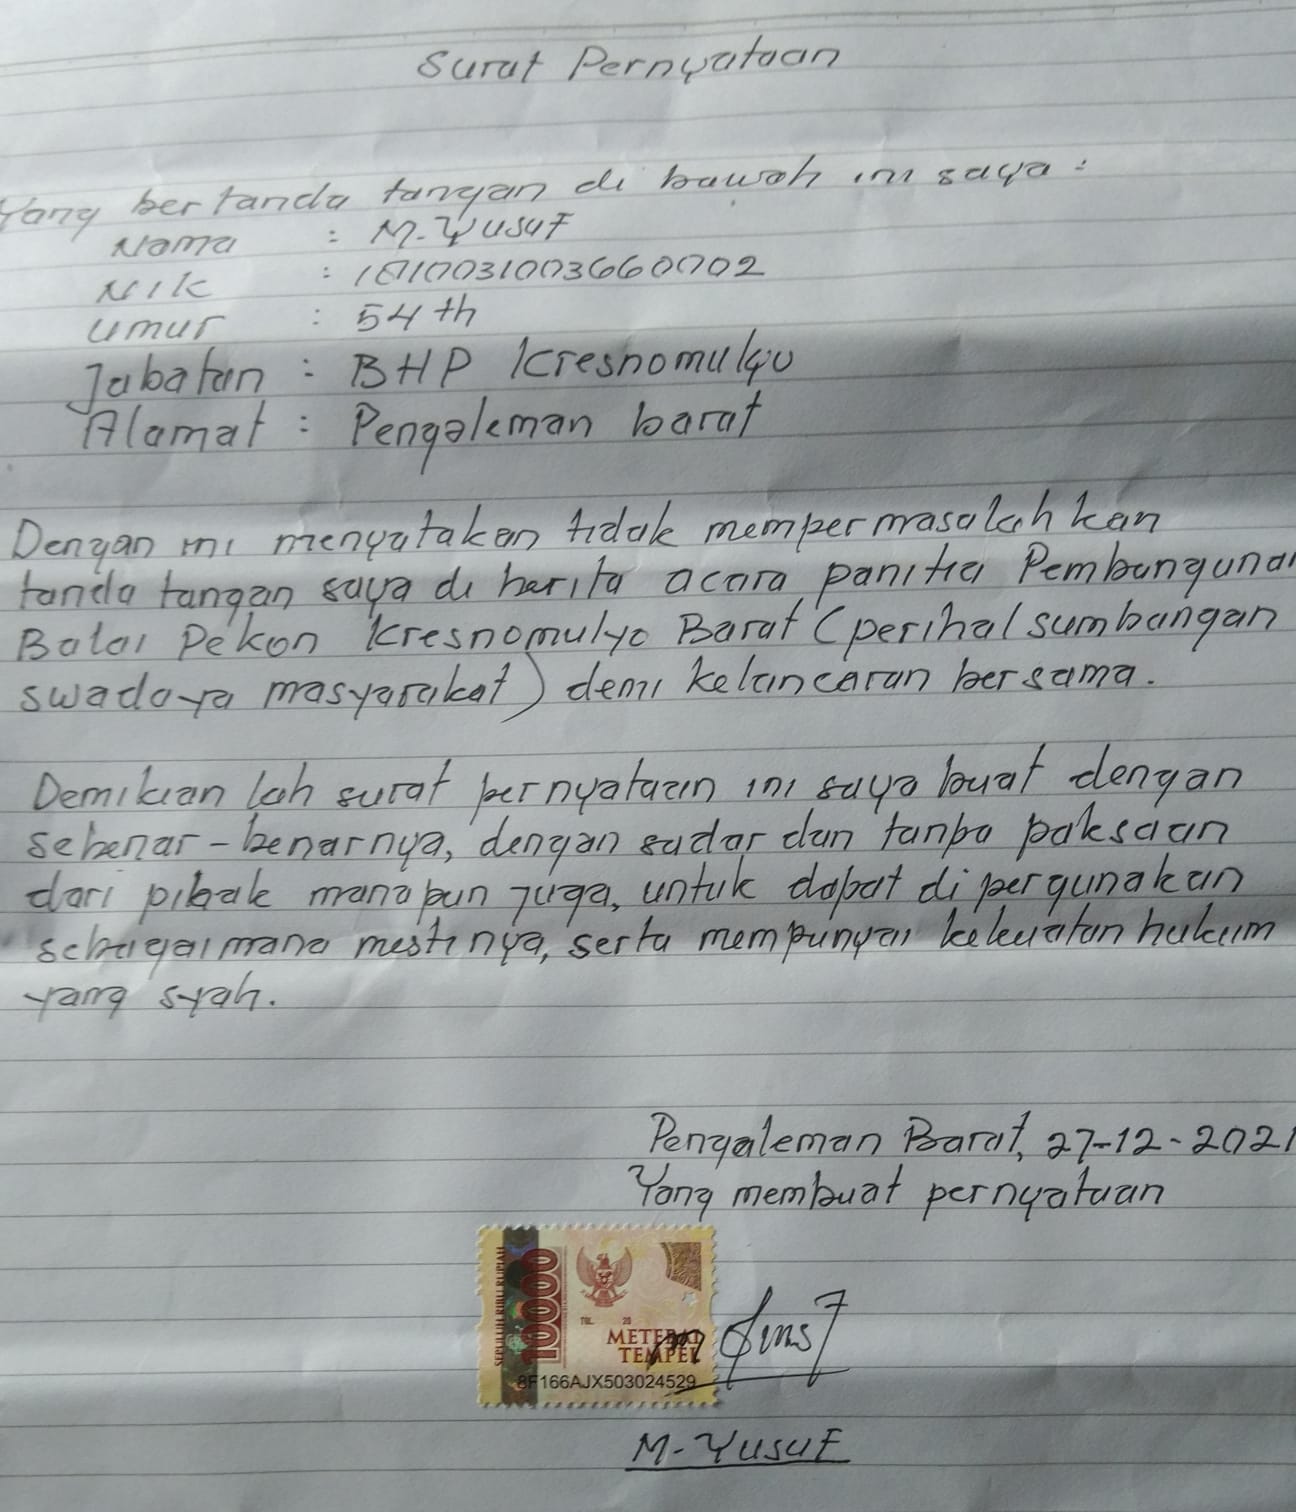 Surat Pernyataan
Yang bertanda tangan di bawah ini saya :
Nama : M. Yusuf
Nik : 1810031003660002
Umur : 54 th
Jabatan : BHP Kresnomulyo
Alamat : Pengaleman barat
Dengan ini menyatakan tidak mempermasalahkan
tanda tangan saya di berita acara panitia Pembangunan
Balai Pekon Kresnomulyo Barat (perihal sumbangan
swadaya masyarakat) demi kelancaran bersama.
Demikian lah surat pernyataan ini saya buat dengan
sebenar-benarnya, dengan sadar dan tanpa paksaan
dari pihak manapun juga, untuk dapat di pergunakan
sebagaimana mestinya, serta mempunyai kekuatan hukum
yang syah.
Pengaleman Barat, 27-12-2021
Yang membuat pernyataan
SEPULUH RIBU RUPIAH
10000
TGL. 20
METERAI
TEMPEL
8F166AJX503024529
M. Yusuf